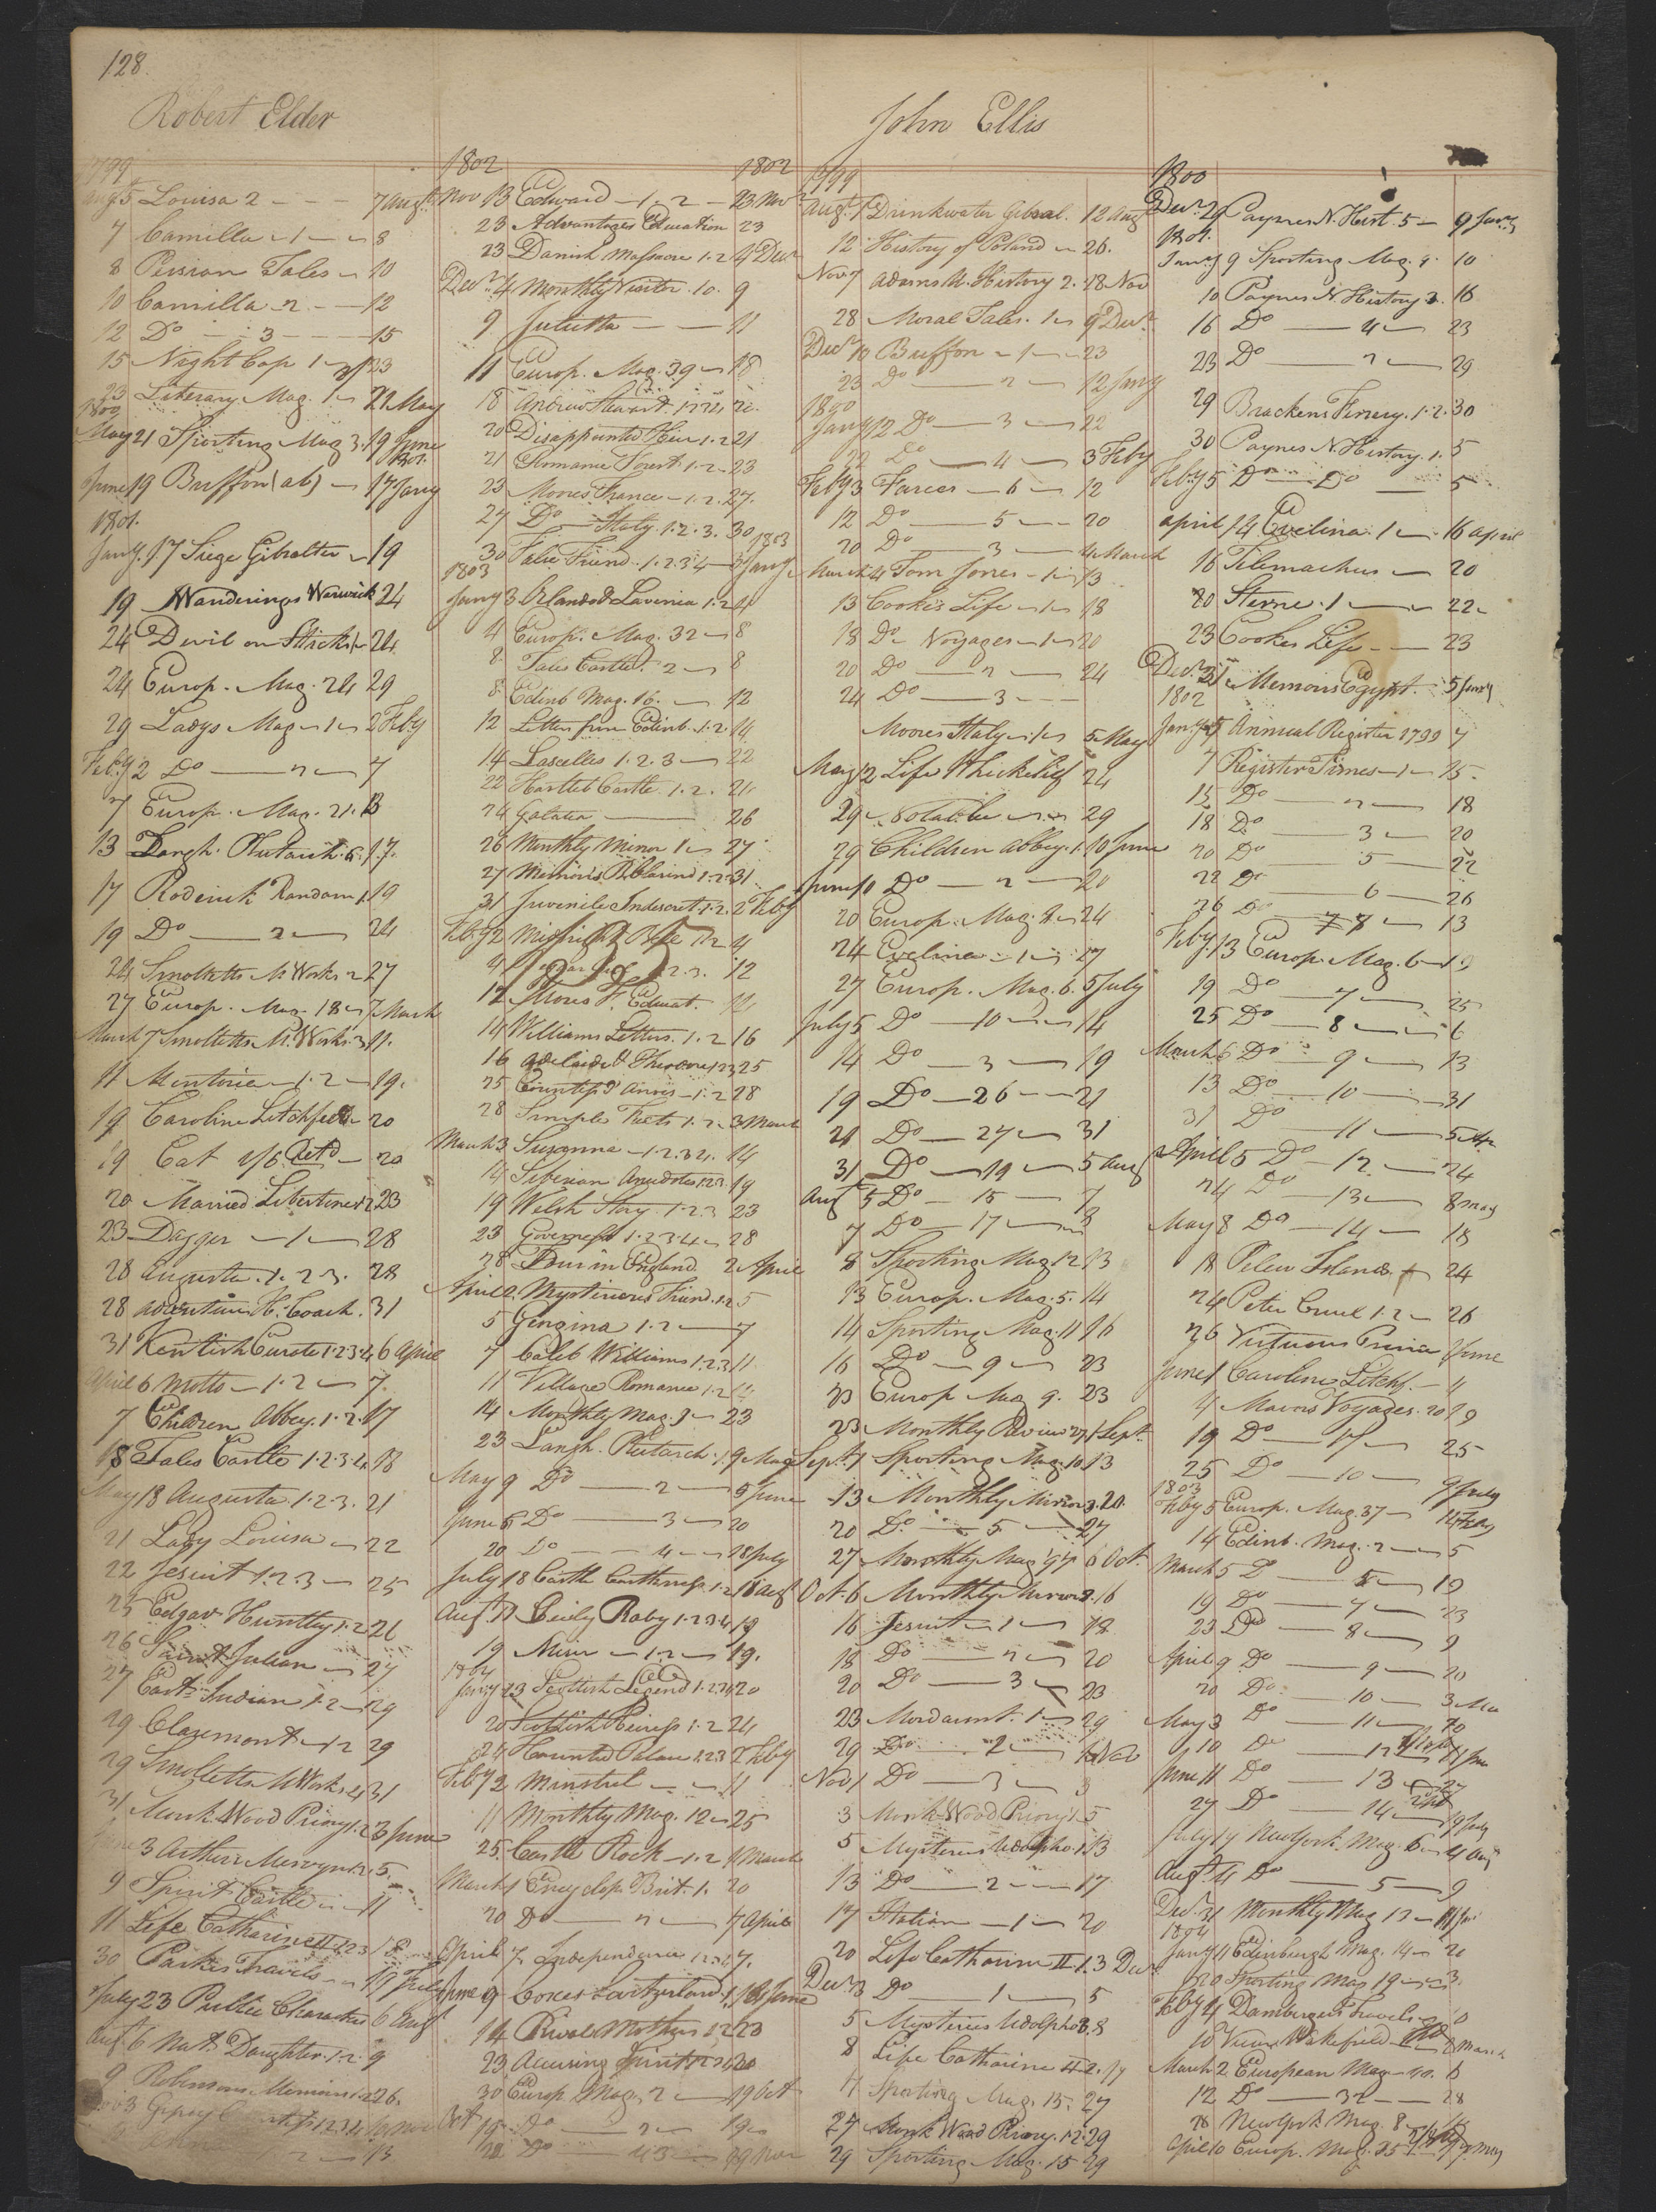 128.
Robert Elder
1799
Augt 5 Louisa 2 - - - 7 Augt
7 Camilla - 1 - 8
8 Persian Tales - 10
10 Camilla - 2 - 12
12 Do - 3 - - - 15
15 Night Cap 1 - 23
23 Literary Mag. 1 - 21 May
1800
May 21 Sporting Mag 3. 19 June
1801
June 19 Buffon (ab) - 17 Jany
1801.
Jany. 17 Siege Gibralter - 19
19 Wanderings Warwick 24
24 Devil on Sticks 1 - 24
24 Europ. Mag. 24 29
29 Ladys Mag - 1 - 2 Feby
Feby 2 Do - 2 - 7
7 Europ. Mag. 21. 13
13 Langh. Plutarch. 6. 17.
17 Roderick Random 1. 19
19 Do - 2 - 24
24 Smolletts M. Works 2 27
27 Europ. Mag. 18 - 7 March
March 7 Smolletts M. Works. 3 11.
11 Mentoria - 1. 2 - 19.
19 Caroline Litchfield - 20
19 Cat 1/6 Retd - 20
20 Married Libertine 1.2 23
23 Dagger - 1 - 28
28 Augusta. 1. 2 3. 28
28 Adventures H. Coach. 31
31 Kentish Curate 1.2.3.4 6 April
April 6 Motto - 1. 2 - 7.
7 Children Abbey. 1. 2. 17
18 Tales Castle 1.2.3.4 18
May 18 Augusta. 1. 2. 3. 21
21 Lady Louisa - 22
22 Jesuit 1. 2. 3 - 25
25 Edgar Huntley 1. 2 26
26 Saint Julian - 27
27 East Indian 1. 2 - 29
29 Claremont - 1 2 29
29 Smolletts M Works. 4 31
31 Munk Wood Priory 1. 2 3 June
June 3 Arthur Mervyn 1. 2. 5
9 Spirit Castle - 11
11 Life Catharine II 1 2 3
30 Parkes Travels -
July 23 Public Character 6 Augt
Augt 6 Nat. Daughter. 1. 2. 9
9 Robinsons Memoirs 26.
1802
1802
Nov 13 Edward - 1. 2 - 23 Nov
23 Advantages Education 23
23 Danish Massacre 1. 2 4 Decr
Decr 4 Monthly Visitor. 10. 9
9 Julietta - - 11
11 Europ. Mag. 39 - 18
18 Andrew Stewart 1 2 3 4 20.
20 Disappointed Heir 1. 2 21
21 Romance Forest 1. 2 - 23
23 Moores France - 1. 2. 27.
27 Do - Italy. 1. 2. 3. 30
1803
30 False Friend. 1. 2 3 4 - 3 Jany
1803
Jany 3 Orlando & Lavinia 1. 2 4
4 Europ. Mag. 32 - 8
8. Tales Castle. 2 - 8
8. Edinb Mag. 16. - 12
12 Letters from Edinb. 1. 2. 14
14 Lascelles 1. 2. 3 - 22
22 Hartleb Castle. 1. 2. 24
24 Galatea - 26
26 Monthly Mirror 1 - 27
27 Memoirs 1. 2. 31
31 Juvenile Indiscret. 1. 2. 2 Feby
Feby 2 Midnight Bell 1. 2 4
4 1. 2. 3. 12
12 Mores F. Educat. 14
14 Williams Letters. 1. 2 16
16 Adelaide & Theodore 1 2 3 25
25 Countess 1. 2 28
28 Simple Facts 1. 2 - 3 March
March 3 Suzanna - 1. 2. 3 4. 14
14 Siberian Anecdotes 1 2 3. 19
19 Welsh Story. 1. 2 3 23
23 Governess 1. 2 3 4 - 28
28 Duc in England 2 April
April 2. Mysterious Friend. 1. 2 5
5 Georgina 1. 2 - 7
7 Caleb Williams 1. 2. 3 11
11 Village Romance 1. 2 14
14 Monthly Mag. 9 - 23
23 Langh. Plutarch. 1. 9 May
May 9 Do - 2 - 5 June
June 5 Do - 3 - 20
20 Do - 4 - 18 July
July 18 Castle Caithness. 1. 2 18 Augt
Augt 17 Cicely Raby 1. 2 3 4 19
19 Miser - 1. 2 - 19.
1804
Jany 23 Scottish Legend 1. 2 3 4 20
20 Scottish Heiress 1. 2 24
24 Haunted Palace 1. 2 3 2 Feby
Feby 2 Minstrel - - 11
11 Monthly Mag. 12 - 25
25. Castle Rock - 1. 2 1 March
March 1 Encyclop. Brit. 1. 20
20 Do - 2 - 7 April
April 7. Independence 1 2 3 4 7.
June 9 Coxes Switzerland. 1. 18 June
14 Rival Mothers 1. 2 23
23 Accusing Spirit 1 2 3 4 30
30 Europ. Mag. 2 - 19 Oct
Oct 19. Do - 2 - 19
22 Do - 43 - 29 Nov
John Ellis
1799
Augt 1 Drinkwater Gibral. 12 Augt
12 History of Poland - 26.
Nov 7 Adams U. History 2. 28 Nov
28 Moral Tales. 1 - 9 Decr
Decr 10 Buffon - 1 - 23
23 Do - 2 - 12 Jany
1800
Jany 12 Do - 3 - 22
22 Do - 4 - 3 Feby
Feby 3 Farces - 6 - 12
12 Do - 5 - - 20
20 Do - 3 - 4 March
March 4 Tom Jones - 1 - 13
13 Cooke's Life - 1 - 18
18 Do Voyages - 1 - 20
20 Do - 2 - 24
24 Do - 3 - -
Moores Italy - 1 - 5 May
May 12 Life 24
29 Notable - 29
29 Children Abbey. 1. 10 June
June 10 Do - 2 - 20
20 Europ. Mag. 8 - 24
24 Evelina - 1 - 27
27 Europ. Mag. 6. 5 July
July 5 Do - 10 - 14
14 Do - 3 - 19
19 Do - 26 - - 21
21 Do - 27 - 31
31 Do - 19 - 5 Aug
Augt 5 Do - 15 - 7
7 Do - 17 - 8
8 Sporting Mag 12 13
13 Europ. Mag. 5. 14
14 Sporting Mag. 11 16
16 Do - 9 - 23
23 Europ Mag 9. 23
23 Monthly Review 27 1 Sept
Sept. 1 Sporting Mag. 10 13
13 Monthly Mirror 3. 20.
20 Do - 5 - 27
27 Monthly Mag 6 Oct.
Oct. 6 Monthly Mirror 2. 16
16 Jesuit - 1 - 18
18 Do - 2 - 20
20 Do - 3 - 23
23 Mordaunt. 1 - 29
29 Do - 2 - 1 Nov
Nov 1 Do - 3 - 3
3 Monk Wood Priory 1. 5
5 Mysteries Udolpho. 1. 13
13 Do - 2 - 17
17 Italian - 1 - 20
20 Life Catharine II. 1. 3 Decr
Decr 3 Do - 1 - 5
5 Mysteries Udolpho 3. 8
8 Life Catharine II. 2. 17
17 Sporting Mag. 15. 27
27 Monk Wood Priory. 1. 2. 29
29 Sporting Mag. 15 29
1800
Decr 29 Paynes N. Hist. 5 - 9 Jany
1801.
Jany 9 Sporting Mag. 9. 10
10 Paynes N. History 3. 16
16 Do - 4 - 23
23 Do - 2 - 29
29 Brackens Farriery. 1. 2. 30
30 Paynes N. History. 1. 5
Feby 5 Do Do - 5
April 14 Evelina. 1 - 16 April
16 Telemachus - 20
20 Sterne. 1 - 22
23 Cookes Life - - 23
Decr 21 Memoirs Egypt. 5 Jany
1802
Jany 5 Annual Register 1799 7
7 Register Times - 1 - 15.
15 Do - 2 - 18
18 Do - 3 - 20
20 Do - 5 - 22
22 Do - 6 - 26
26 Do - 7 - 13
Feby. 13 Europ. Mag. 6 - 19
19 Do - 7 - 25
25 Do - 8 - 6
March 6 Do - 9 - 13
13 Do - 10 - 31
31 Do - 11 - 5 Apr
April 5 Do - 12 - 24
24 Do - 13 - 8 May
May 8 Do - 14 - 18
18 Pelew Islands - 24
24 Peter Cruel 1. 2 - 26
26 Virtuous Prince 1 June
June 1 Caroline Litchf. - 4
4 Mavors Voyages. 20 19
19 Do - 17 - 25
25 Do - 10 - 9 July
1803
Feby 5 Europ. Mag. 37 - 14 Feby
14 Edinb. Mag. 2 - 5
March 5 Do - 5 - 19
19 Do - 7 - 23
23 Do - 8 - 9
April 9 Do - 9 - 20
20 Do - 10 - 3 May
May 3 Do - 11 - 10
10 Do - 12 11 June
June 11 Do - 13 - 27
27 Do - 14 - 19 July
July 19 New York Mag. 6 - 4 Augt
Augt. 4 Do - 5 - 9
Decr. 31 Monthly Mag 12 - 11 Jan
1804
Jany 11 Edinburgh Mag. 14 - 20
20 Sporting Mag 19 - 3.
Feby 4 Dambergers Travels - 10
10 Vicar Wakefield 2 March
March 2 European Mag - 40. 6
12 Do - 32 - 28
28 New York Mag. 8 -
April 10 Europ. Mag. 35 May